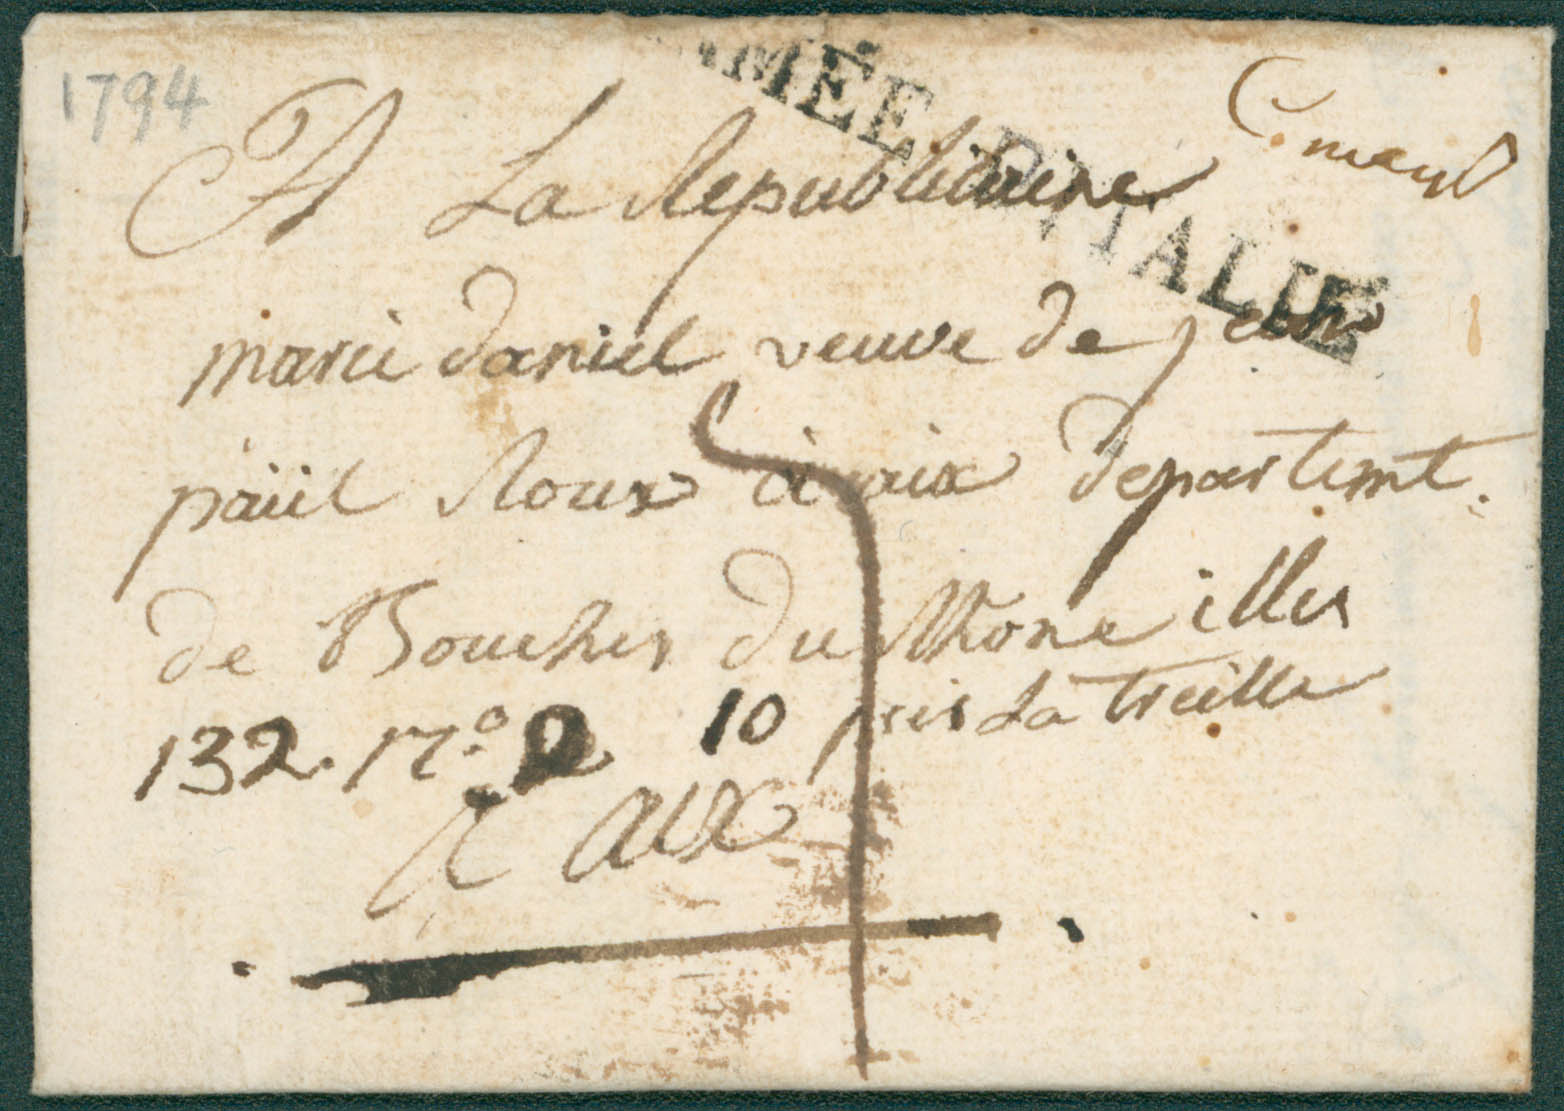 1794
MÉE D'ITALIE
A La Republicaine
marie daniel veuve de jean
païïl Roux à aix departemt.
de Bouches du Rhone illes
132. n.º 10 pres La treille
A aix